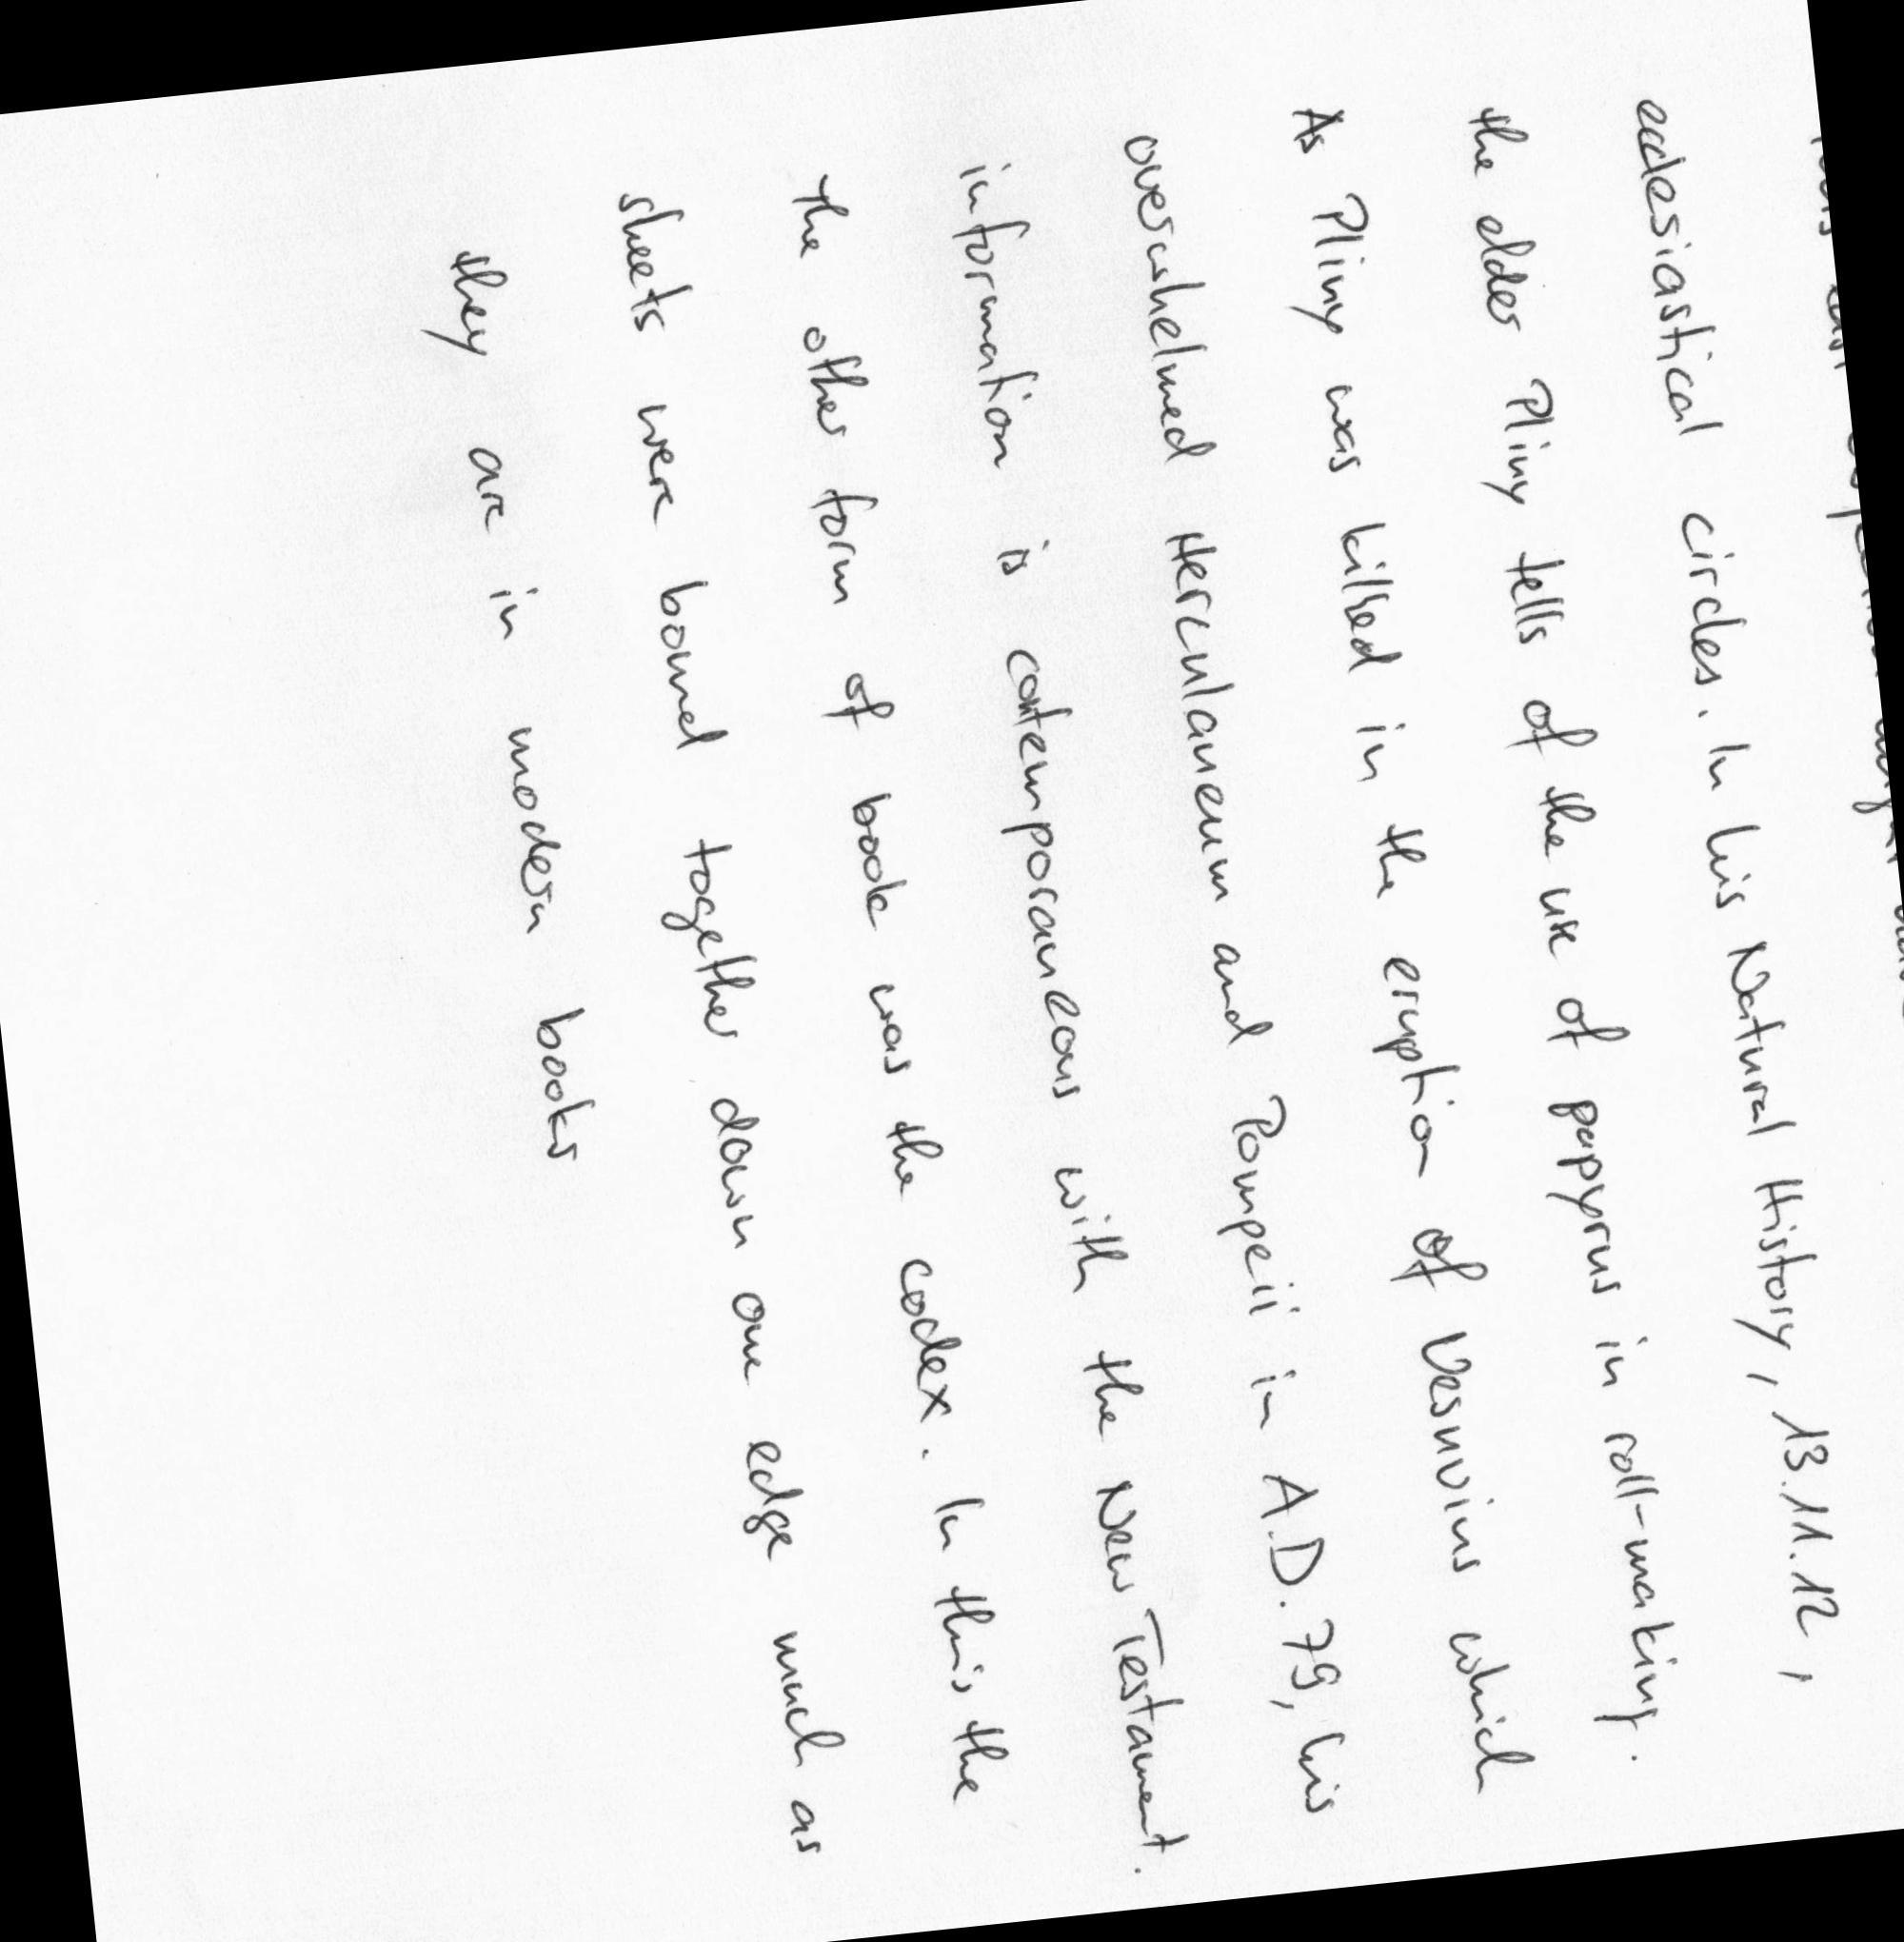 ecclesiastical circles. In his Natural History, 13.11.12,
the elder Pliny tells of the use of papyrus in roll-making.
As Pliny was killed in the eruption of Vesuvius which
overwhelmed Herculaneum and Pompeii in A.D. 79, his
information is contemporaneous with the New Testament.
The other form of book was the codex. In this the
sheets were bound together down one edge much as
they are in modern books